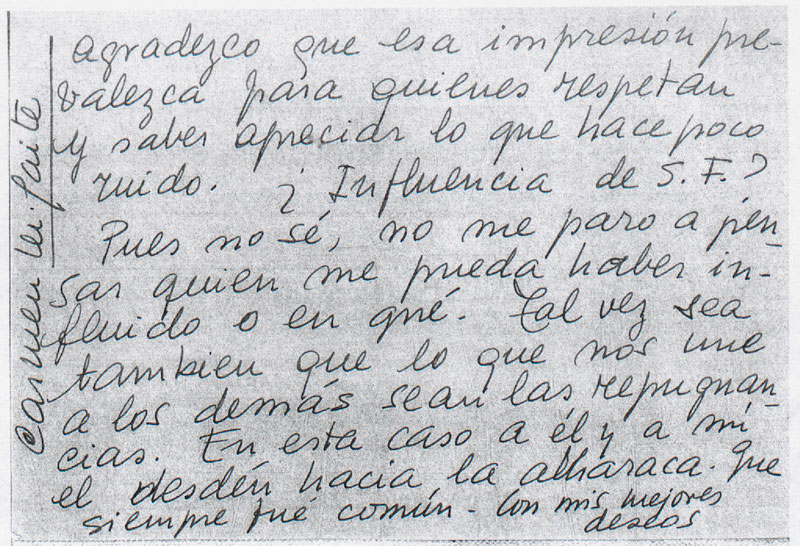 agradezco que esa impresión pre-
valezca para quienes respetan
y saber apreciar lo que hace poco
ruido. ¿Influencia de S. F.?
Pues no sé, no me paro a pen-
sar quien me pueda haber in-
fluido o en qué. Tal vez sea
tambien que lo que nos une
a los demás sean las repugnan-
cias. En esta caso a él y a mí
el desdén hacia la alharaca. que
siempre fué común - Con mis mejores
deseos
Carmen laffaite